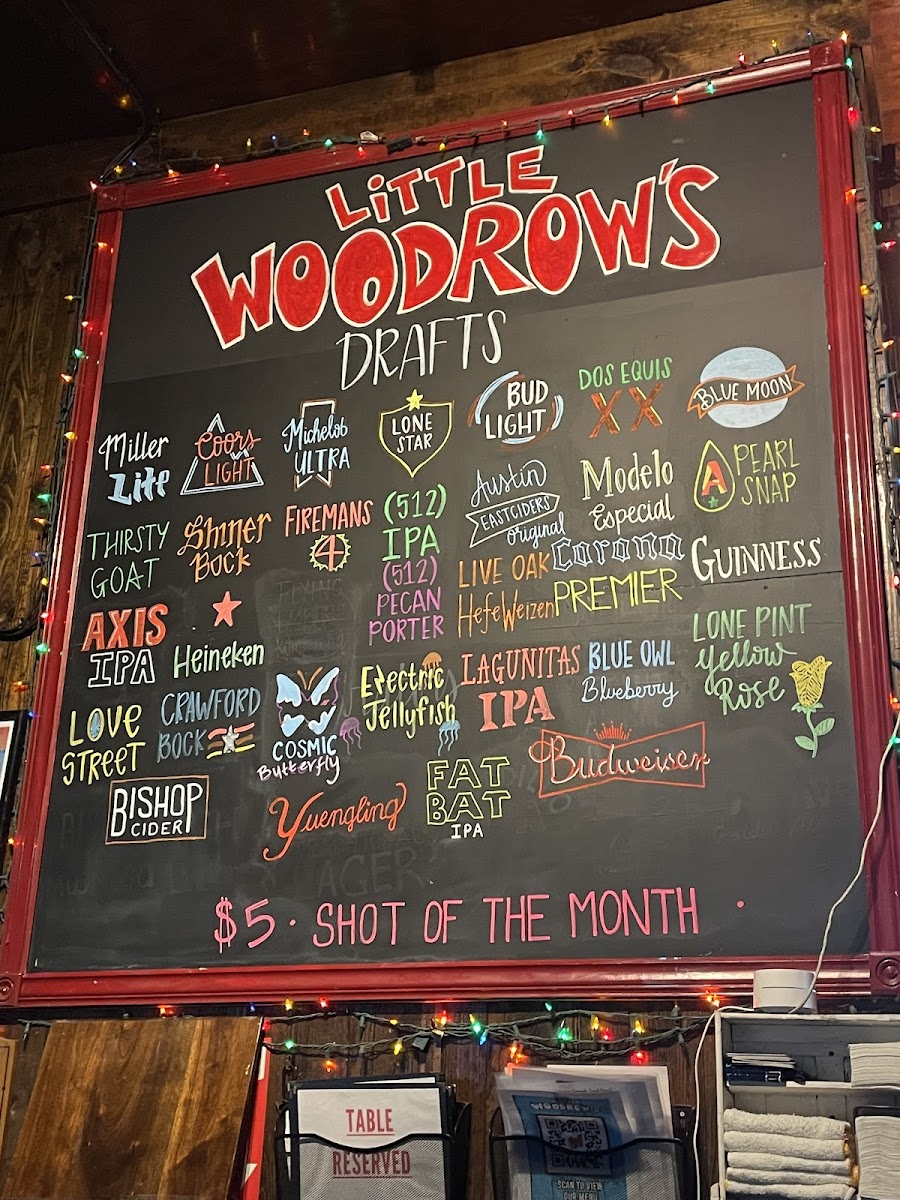 LiTTLE
WOODROW'S
DRAFTS
Miller
Lite
Coors
LIGHT
Michelob
ULTRA
LONE
STAR
BUD
LIGHT
DOS EQUIS
XX
BLUE MOON
THIRSTY
GOAT
Shiner
Bock
FIREMANS
4
(512)
IPA
Austin
EASTCIDERS
original
Modelo
Especial
A
PEARL
SNAP
AXIS
IPA
Heineken
(512)
PECAN
PORTER
LIVE OAK
HefeWeizen
Corona
PREMIER
GUINNESS
LOVE
STREET
CRAWFORD
BOCK
COSMIC
Butterfly
Electric
Jellyfish
LAGUNITAS
IPA
BLUE OWL
Blueberry
LONE PINT
Yellow
Rose
BISHOP
CIDER
Yuengling
FAT
BAT
IPA
Budweiser
$5 · SHOT OF THE MONTH ·
TABLE
RESERVED
WOODROW'S
SCAN TO VIEW
OUR MENU